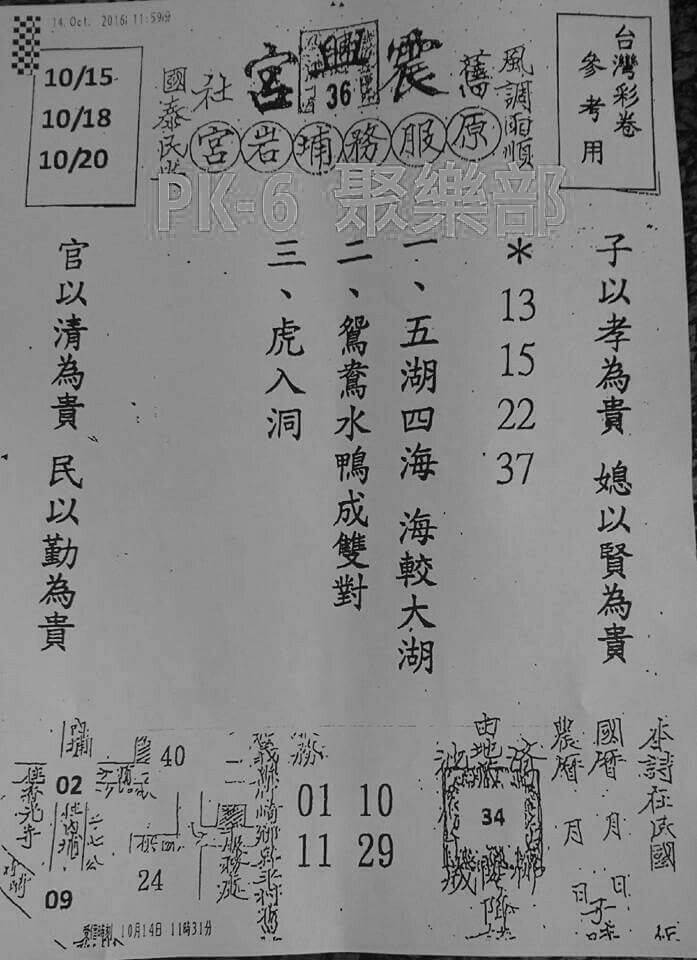 14. Oct. 2016 11:59分
台灣彩卷
參考用
風調雨順
舊
震興宮
36
社
國泰民
原服務埔岩宮
10/15
10/18
10/20
PK-6 聚樂部
子以孝為貴 媳以賢為貴
*
13
15
22
37
一、五湖四海 海較大湖
二、鴛鴦水鴨成雙對
三、虎入洞
官以清為貴 民以勤為貴
本詩在民國
國曆 月 日
農曆 月 日
由地
34
務
01 10
11 29
40
24
02
09
10月14日 11時31分